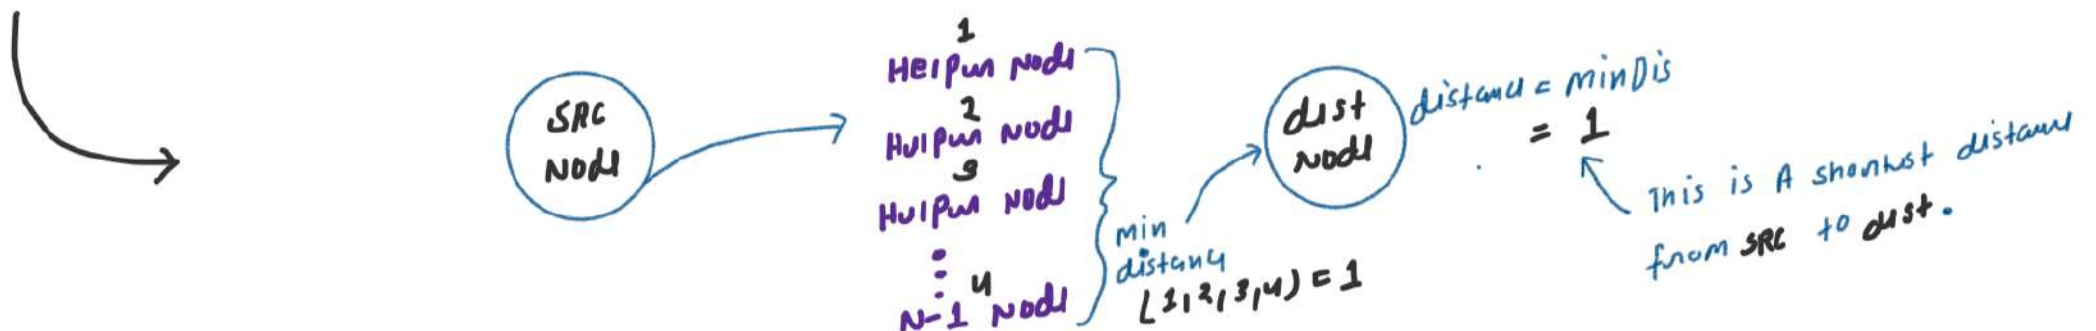 SRC
Node
1
Helper Node
2
Helper Node
3
Helper Node
4
N-1 Node
min
distance
(1,2,3,4) = 1
dest
Node
distance = minDis
= 1
This is A shortest distance
from SRC to dest.